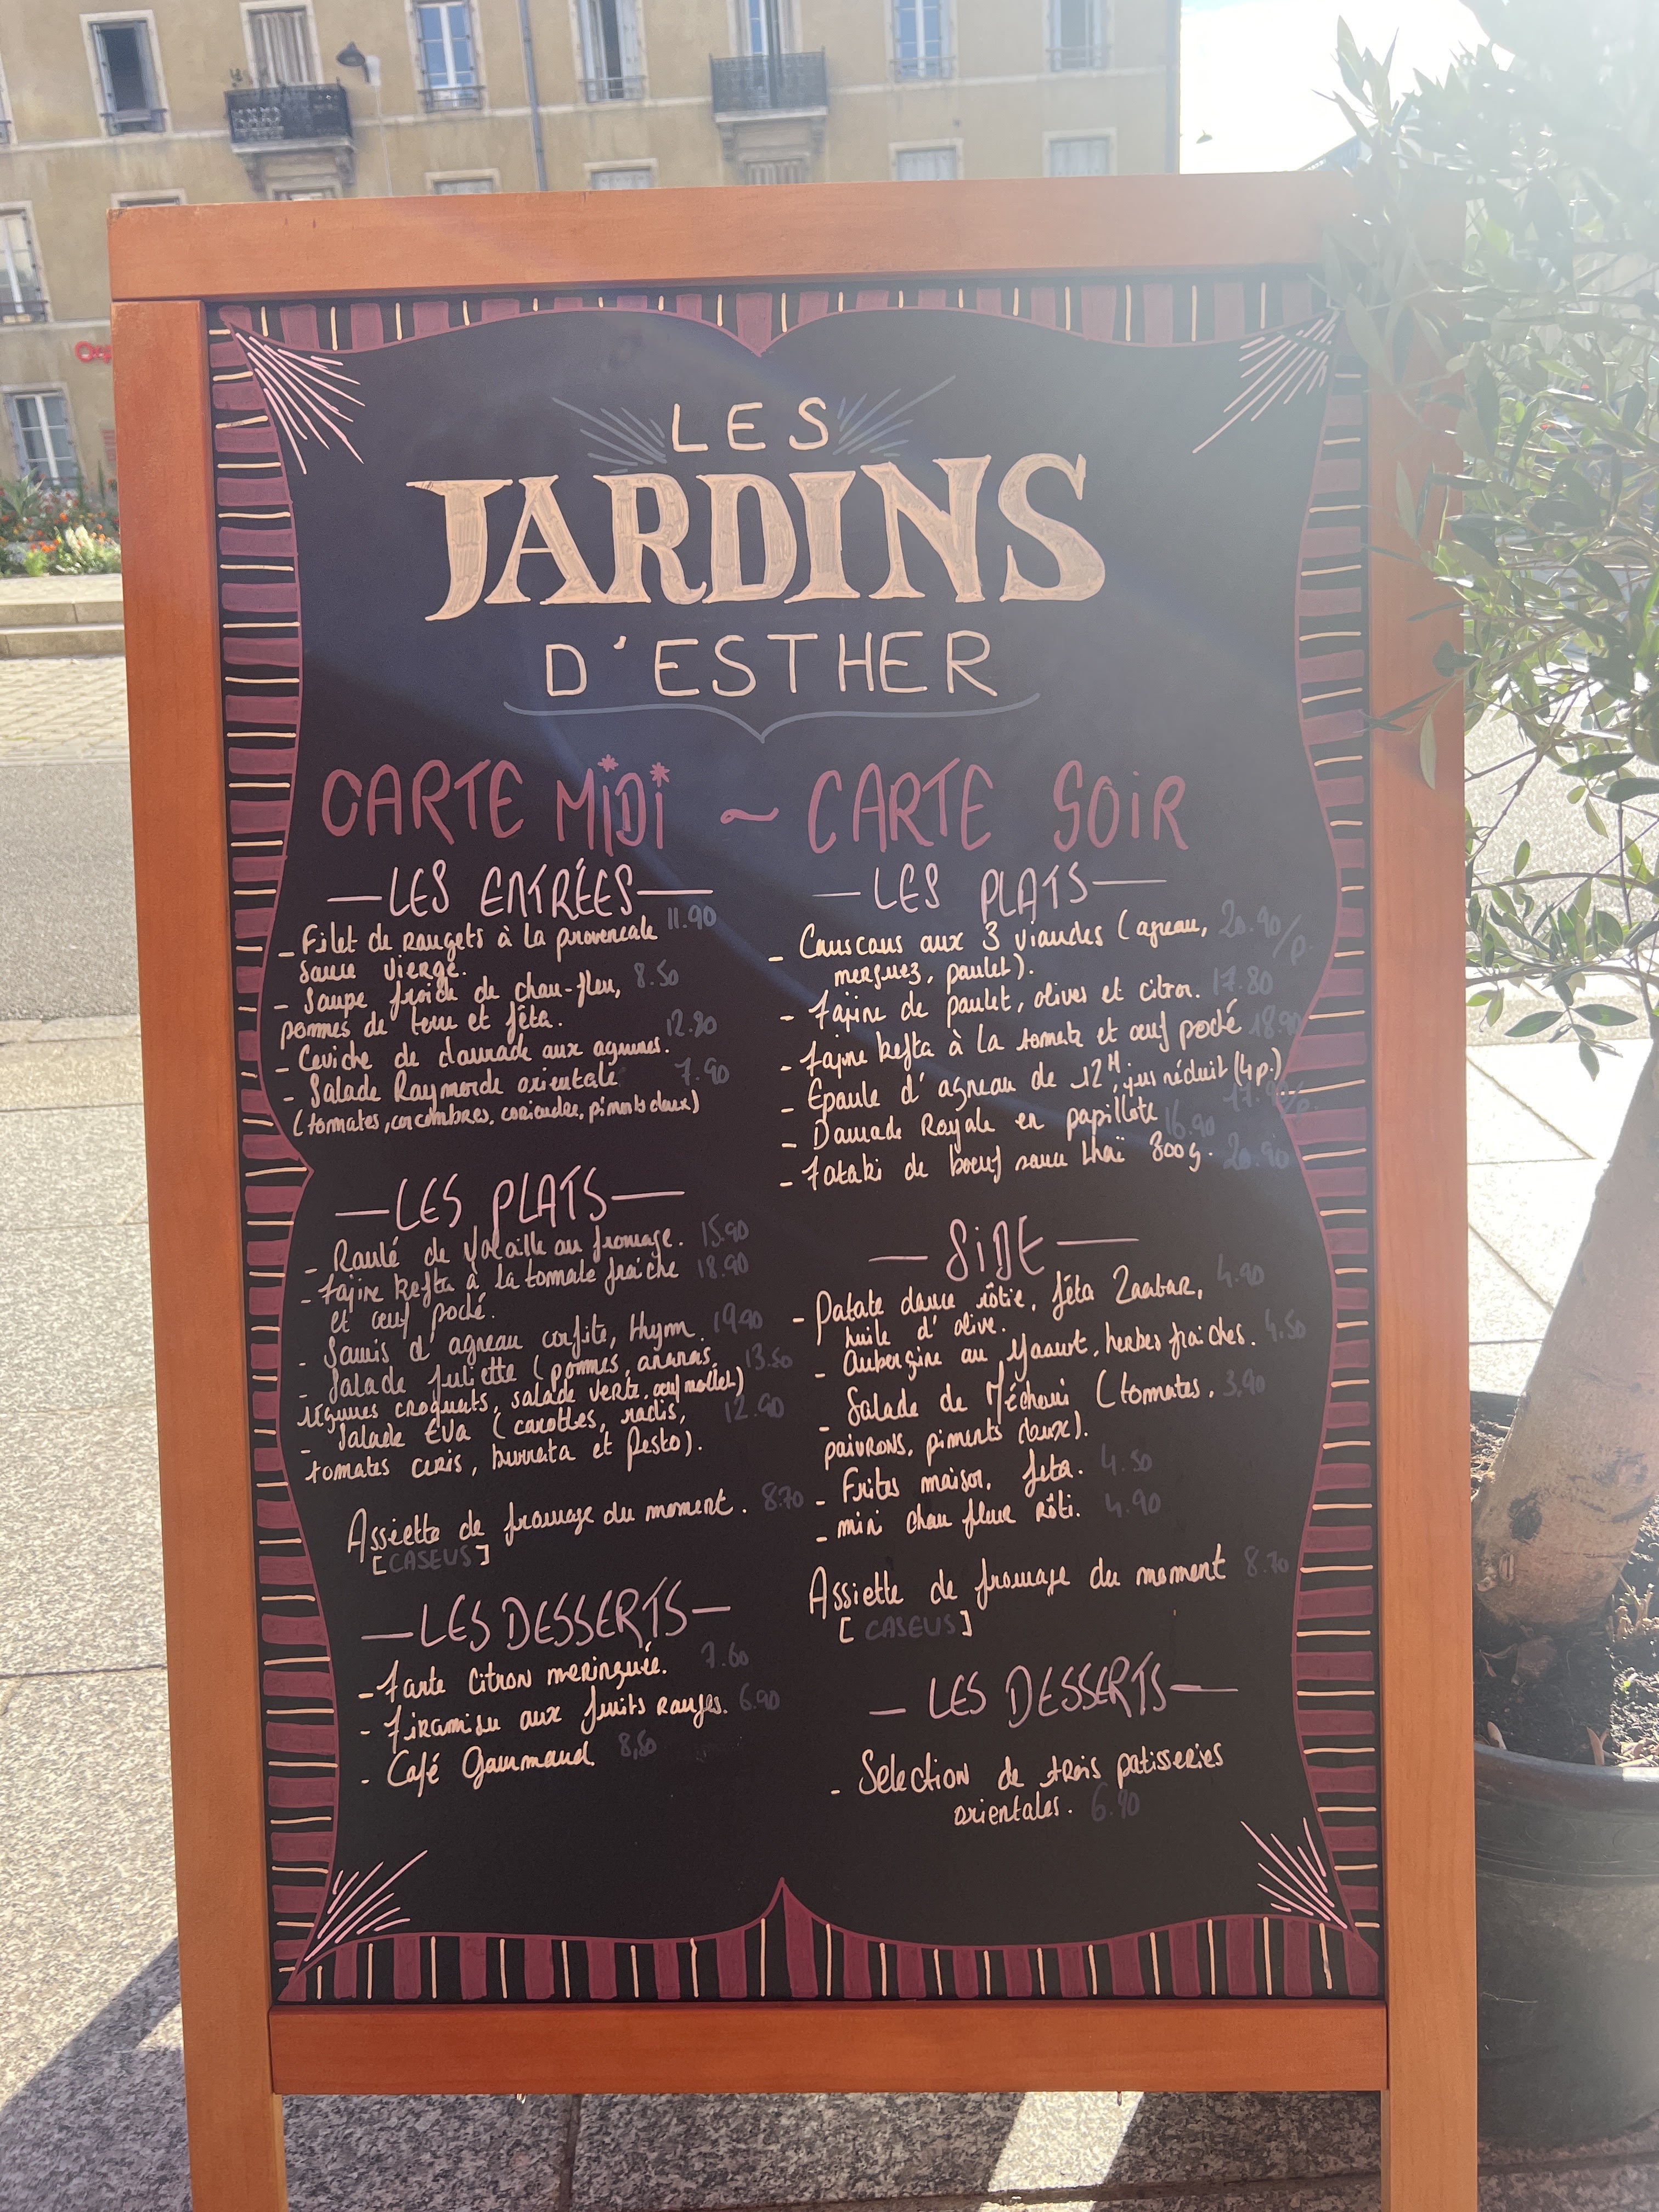 LES
JARDINS
D'ESTHER
CARTE MiDi ~ CARTE SOiR
—LES ENTRÉES—
- Filet de rougets à la provencale 11.90
sauce vierge.
- Soupe froide de chou-fleur, 8.50
pommes de terre et féta.
- Ceviche de daurade aux agrumes. 12.20
- Salade Raymonde orientale 7.90
(tomates, concombres, coriandre, piments doux)
—LES PLATS—
- Roulé de volaille au fromage. 15.90
- Tajine kefta à la tomate fraiche 18.90
et œuf poché.
- Souris d'agneau confite, thym. 19.90
- Salade Juliette (pommes, ananas, 13.50
légumes croquants, salade verte, œuf mollet)
- Salade Eva (carottes, radis, 12.90
tomates ceris, burrata et Pesto).
Assiette de fromage du moment. 8.70
[CASEUS]
—LES DESSERTS—
- Tarte Citron meringuée. 7.60
- Tiramisu aux fruits rouges. 6.90
- Café Gourmand 8,50
—LES PLATS—
- Couscous aux 3 viandes (agneau, 20.90/p.
merguez, poulet).
- Tajine de poulet, olives et citron. 17.80
- Tajine kefta à la tomate et œuf poché 18.90
- Epaule d'agneau de 12H, jus réduit (4p.)
- Daurade Royale en papillote 16.90
- Tataki de bœuf sauce thaï 300g. 20.90
—SiDE—
- Patate douce rôtie, féta Zaatar, 4.90
huile d'olive.
- Aubergine au Yaourt, herbes fraiches. 4.50
- Salade de Méchoui (tomates, 3.90
poivrons, piments doux).
- Frites maison, feta. 4.50
- mini chou fleur Rôti. 4.90
Assiette de fromage du moment 8.70
[CASEUS]
—LES DESSERTS—
- Selection de trois patisseries
orientales. 6.90